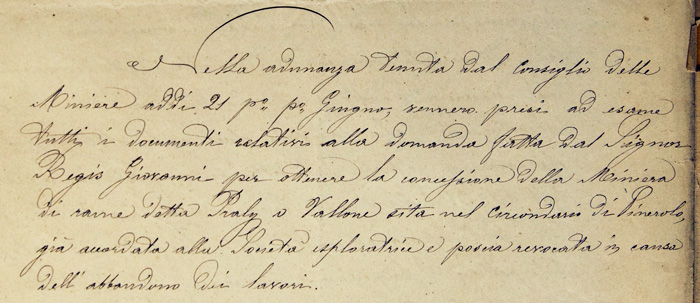 Nella adunanza tenuta dal Consiglio delle
Miniere addì 21 p.o p.o Giugno, vennero presi ad esame
tutti i documenti relativi alla domanda fatta dal Signor
Regis Giovanni per ottenere la concessione della Miniera
di rame detta Praly o Vallone sita nel circondario di Pinerolo,
già accordata alla Società esploratrice e poscia revocata in causa
dell'abbandono dei lavori.